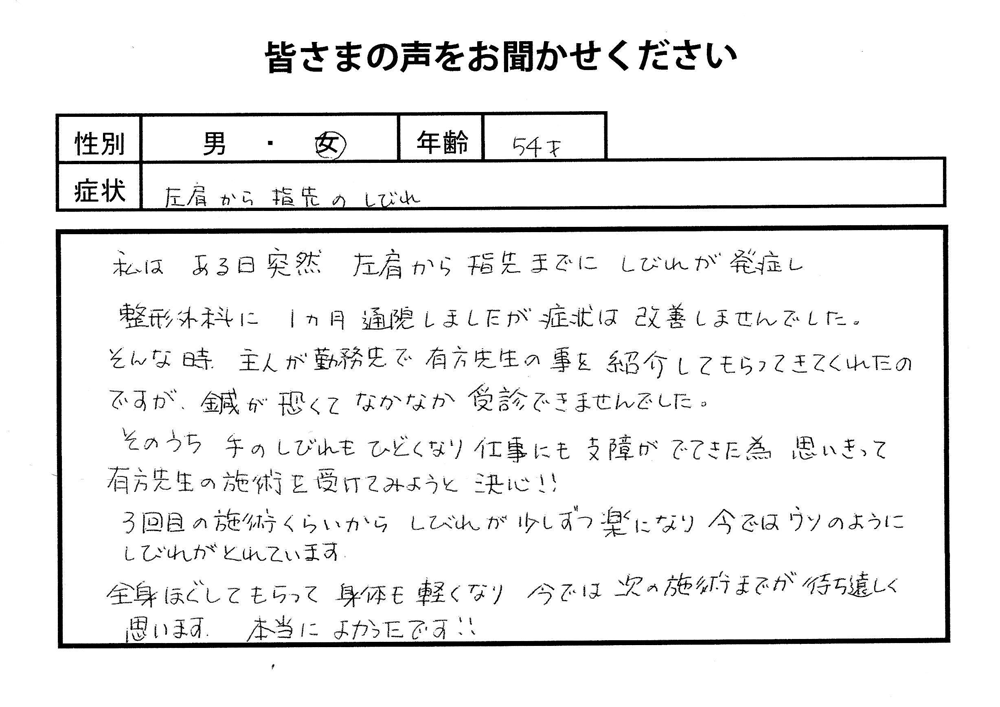 皆さまの声をお聞かせください
性別 男 ・ 女 年齢 54才
症状 左肩から指先のしびれ
私は ある日突然 左肩から指先までに しびれが発症し
整形外科に 1ヵ月通院しましたが症状は改善しませんでした。
そんな時、主人が勤務先で有方先生の事を紹介してもらってきてくれたの
ですが、鍼が恐くてなかなか受診できませんでした。
そのうち 手のしびれもひどくなり仕事にも支障がでてきた為 思いきって
有方先生の施術を受けてみようと決心!!
3回目の施術くらいから しびれが少しずつ楽になり今ではウソのように
しびれがとれています。
全身ほぐしてもらって 身体も軽くなり 今では次の施術までが待ち遠しく
思います。 本当に よかったです!!